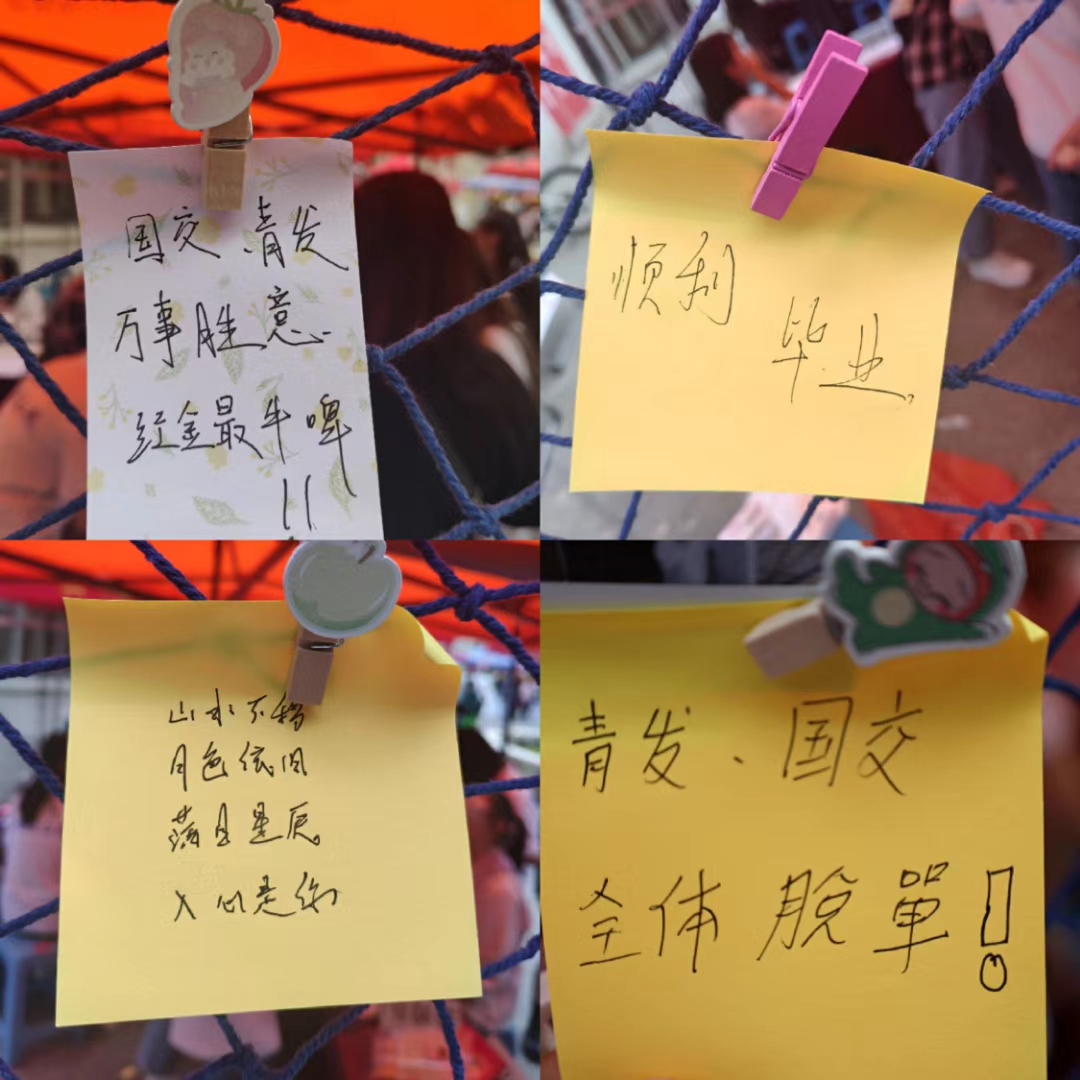 国交 青发
万事胜意
经金最牛啤
!!
顺利
毕业.
山水不移
月色依旧
落目星辰
入心是你
青发、国交
全体脫單!